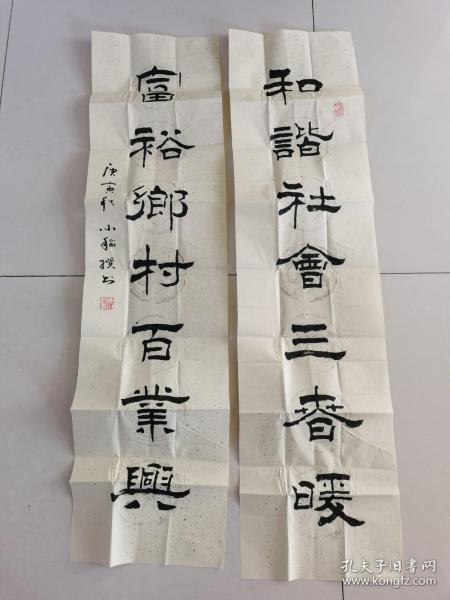 和諧社會三春暖
富裕鄉村百業興
庚寅秋小稱撰书
孔夫子旧书网
www.kongfz.com